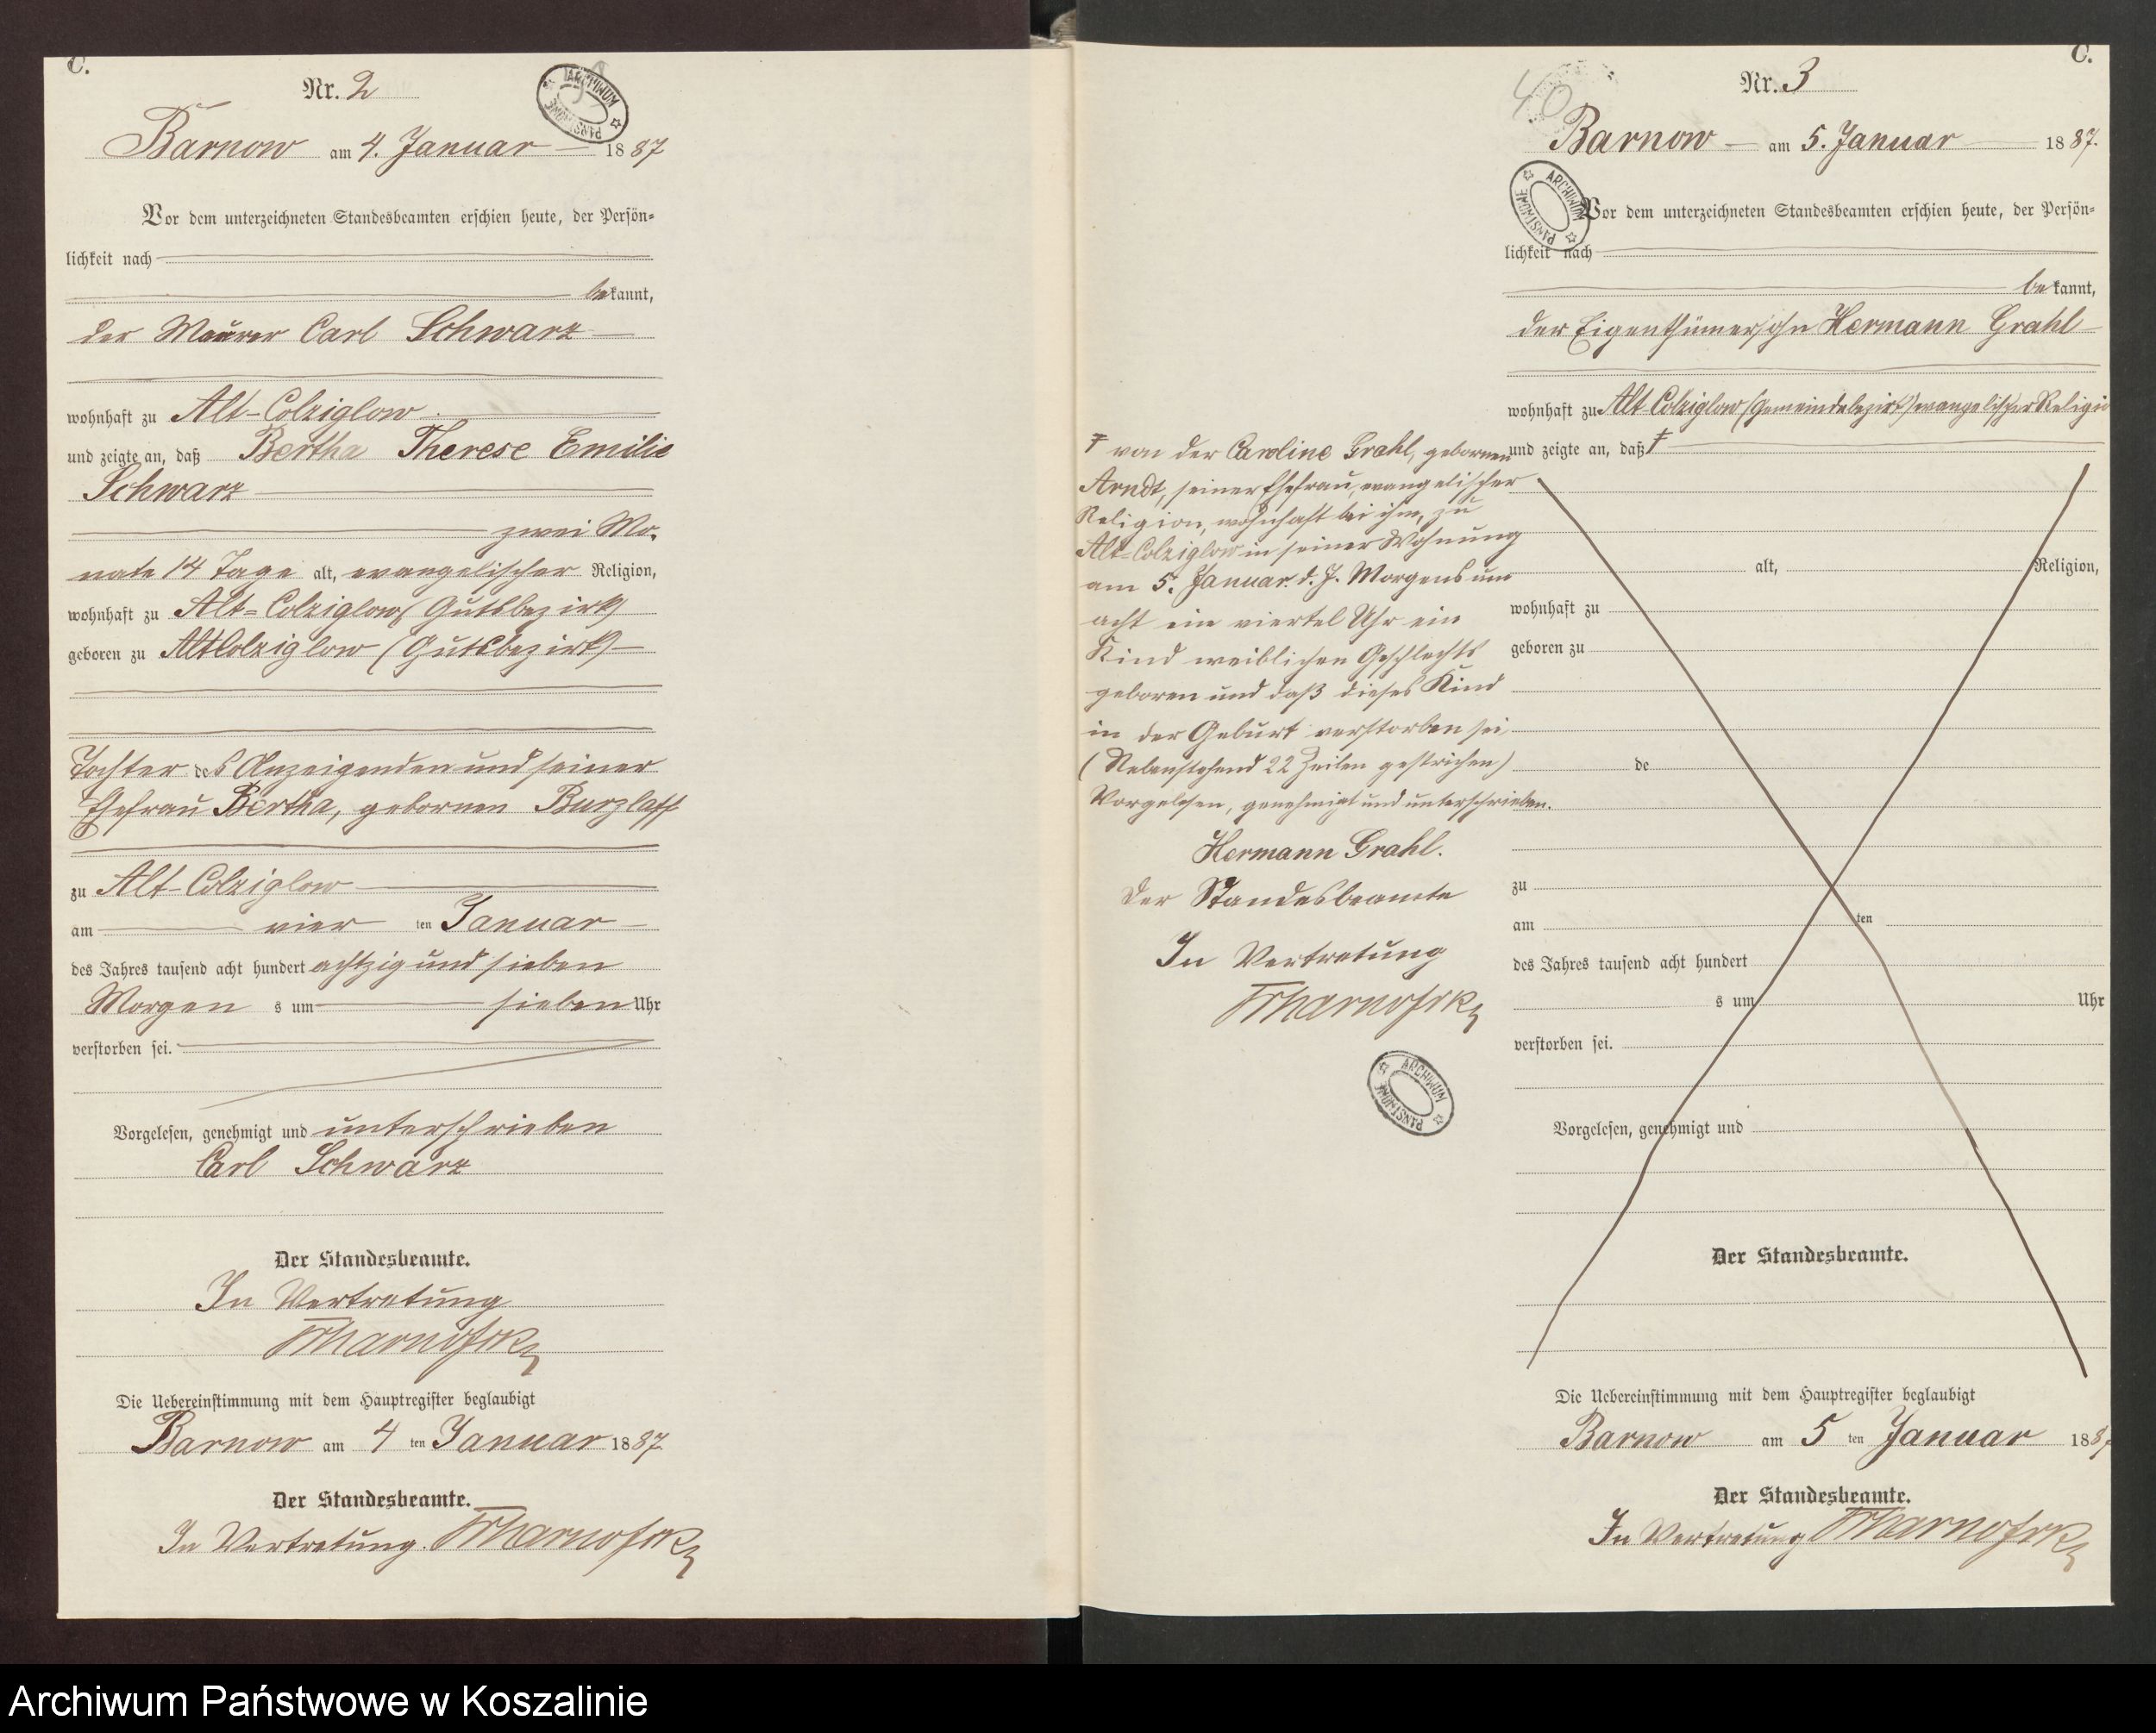 C.
Nr. 2
ARCHIWUM PAŃSTWOWE
Barnow am 4. Januar 1887
Vor dem unterzeichneten Standesbeamten erschien heute, der Persön-
lichkeit nach
bekannt,
der Maurer Carl Schwarz
wohnhaft zu Alt-Colziglow
und zeigte an, daß Bertha Therese Emilie
Schwarz
zwei Mo-
nate 14 Tage alt, evangelischer Religion,
wohnhaft zu Alt-Colziglow (Gutsbezirk)
geboren zu Alt Colziglow (Gutsbezirk)
Tochter des Anzeigenden und seiner
Ehefrau Bertha, gebornen Burzlaff
zu Alt-Colziglow
am vier ten Januar
des Jahres tausend acht hundert achtzig und sieben
Morgen s um sieben Uhr
verstorben sei.
Vorgelesen, genehmigt und unterschrieben
Carl Schwarz
Der Standesbeamte.
In Vertretung
Die Uebereinstimmung mit dem Hauptregister beglaubigt
Barnow am 4 ten Januar 1887.
Der Standesbeamte.
In Vertretung.
C.
40
Nr. 3
Barnow am 5. Januar 1887.
ARCHIWUM PAŃSTWOWE
Vor dem unterzeichneten Standesbeamten erschien heute, der Persön-
lichkeit nach
bekannt,
der Eigenthümersohn Hermann Grahl
wohnhaft zu Alt Colziglow (Gemeindebezirk) evangelischer Religio
und zeigte an, daß
von der Caroline Grahl, gebornen
Arndt, seiner Ehefrau, evangelischer
Religion, wohnhaft bei ihm, zu
Alt-Colziglow in seiner Wohnung
am 5. Januar d. J. Morgens um
acht ein viertel Uhr ein
Kind weiblichen Geschlechts
geboren und daß dieses Kind
in der Geburt verstorben sei
(Nebenstehend 22 Zeilen gestrichen)
Vorgelesen, genehmigt und unterschrieben.
Hermann Grahl.
Der Standesbeamte
In Vertretung
ARCHIWUM PAŃSTWOWE
alt, Religion,
wohnhaft zu
geboren zu
de
zu
am ten
des Jahres tausend acht hundert
s um Uhr
verstorben sei.
Vorgelesen, genehmigt und
Der Standesbeamte.
Die Uebereinstimmung mit dem Hauptregister beglaubigt
Barnow am 5 ten Januar 188
Der Standesbeamte.
In Vertretung
Archiwum Państwowe w Koszalinie